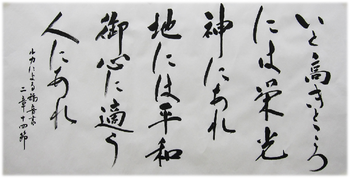 いと高きところ
には栄光
神にあれ
地には平和
御心に適う
人にあれ
ルカによる福音書
二章十四節